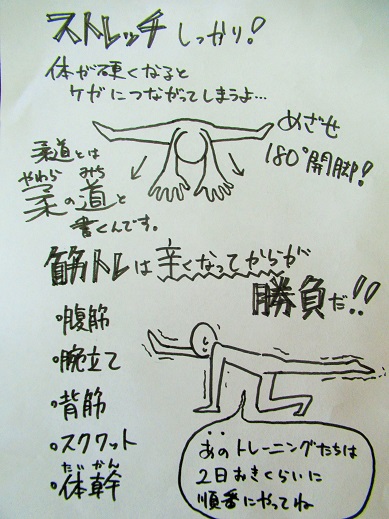 ストレッチ しっかり!
体が硬くなると
ケガにつながってしまうよ…
めざせ
180°開脚!
柔道とは
やわら みち
柔の道と
書くんです。
筋トレは辛くなってからが
勝負だ!!
・腹筋
・腕立て
・背筋
・スクワット
たいかん
・体幹
あのトレーニングたちは
2日おきくらいに
順番にやってね